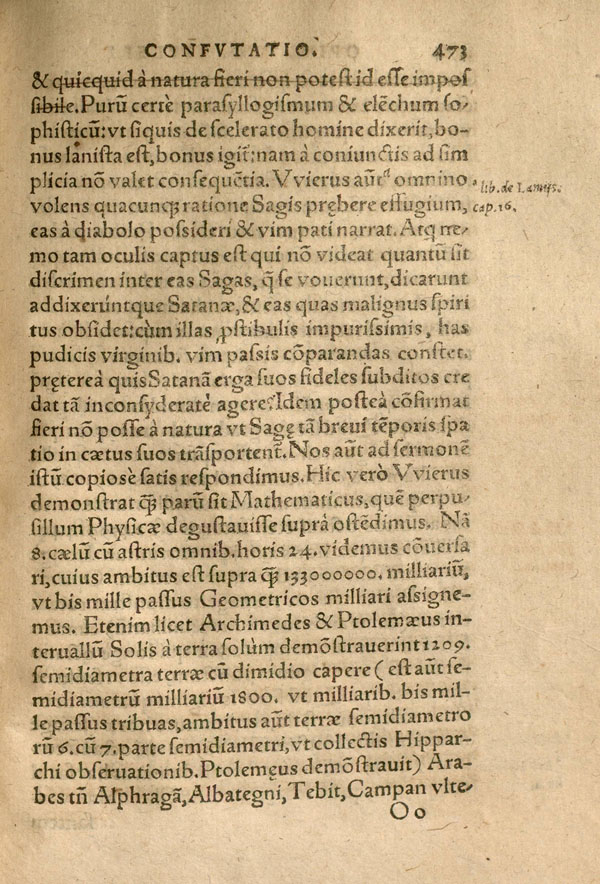 CONFVTATIO. 473
& quicquid à natura fieri non potest id esse impos
sibile. Purū certè parasyllogismum & elēchum so-
phisticū: vt siquis de scelerato homine dixerit, bo-
nus lanista est, bonus igit: nam à coniunctis ad sim
plicia nō valet consequētia. Vvierus aūt ᵃ omnino
volens quacunq; ratione Sagis prębere effugium,
eas à diabolo possideri & vim pati narrat. Atq ne-
mo tam oculis captus est qui nō videat quantū sit
discrimen inter eas Sagas, q̄ se vouerunt, dicarunt
addixeruntque Satanæ, & eas quas malignus spiri
tus obsidet: cùm illas, ꝓstibulis impurissimis, has
pudicis virginib. vim passis cōparandas constet.
pręterea quis Satanā erga suos fideles subditos cre
dat tā inconsyderatè agere? Idem posteà cōfirmat
fieri nō posse à natura vt Sagę tā breui tēporis spa
tio in cætus suos trāsportent̄. Nos aūt ad sermonē
istū copiosè satis respondimus. Hic verò Vvierus
demonstrat q̄; parū sit Mathematicus, quē perpu-
sillum Physicæ degustauisse suprà ostēdimus. Nā
8. cælū cū astris omnib. horis 24. videmus cōuersa
ri, cuius ambitus est supra q̄; 133000000. milliariū,
vt bis mille passus Geometricos milliari assigne-
mus. Etenim licet Archimedes & Ptolemæus in-
teruallū Solis à terra solùm demōstrauerint 1209.
semidiametra terræ cū dimidio capere ( est aūt se-
midiametrū milliariū 1800. vt milliarib. bis mil-
le passus tribuas, ambitus aūt terræ semidiametro
rū 6. cū 7. parte semidiametri, vt collectis Hippar-
chi obseruationib. Ptolemęus demōstrauit) Ara-
bes tn̄ Alphragā, Albategni, Tebit, Campan vlte-
Oo
ᵃ lib. de Lamijs.
cap. 16.